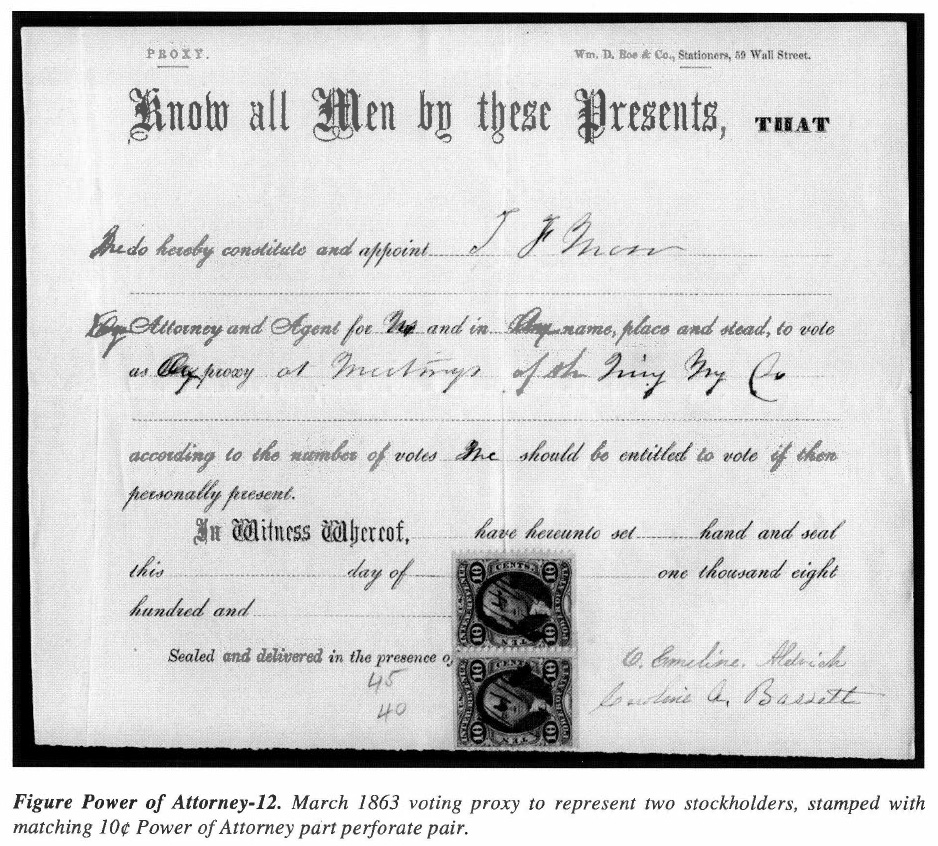 PROXY.
Wm. D. Roe & Co., Stationers, 59 Wall Street.
Know all Men by these Presents, THAT
We do hereby constitute and appoint J F
Our Attorney and Agent for Us and in Our name, place and stead, to vote
as Our proxy at Meetings of the Co
according to the number of votes We should be entitled to vote if then
personally present.
In Witness Whereof, have hereunto set hand and seal
this day of one thousand eight
hundred and
Sealed and delivered in the presence of
45
40
10 CENTS 10
10 TEN 10
10 CENTS 10
10 TEN 10
O. Emeline. Aldrich
Caroline A. Bassett
Figure Power of Attorney-12. March 1863 voting proxy to represent two stockholders, stamped with
matching 10¢ Power of Attorney part perforate pair.